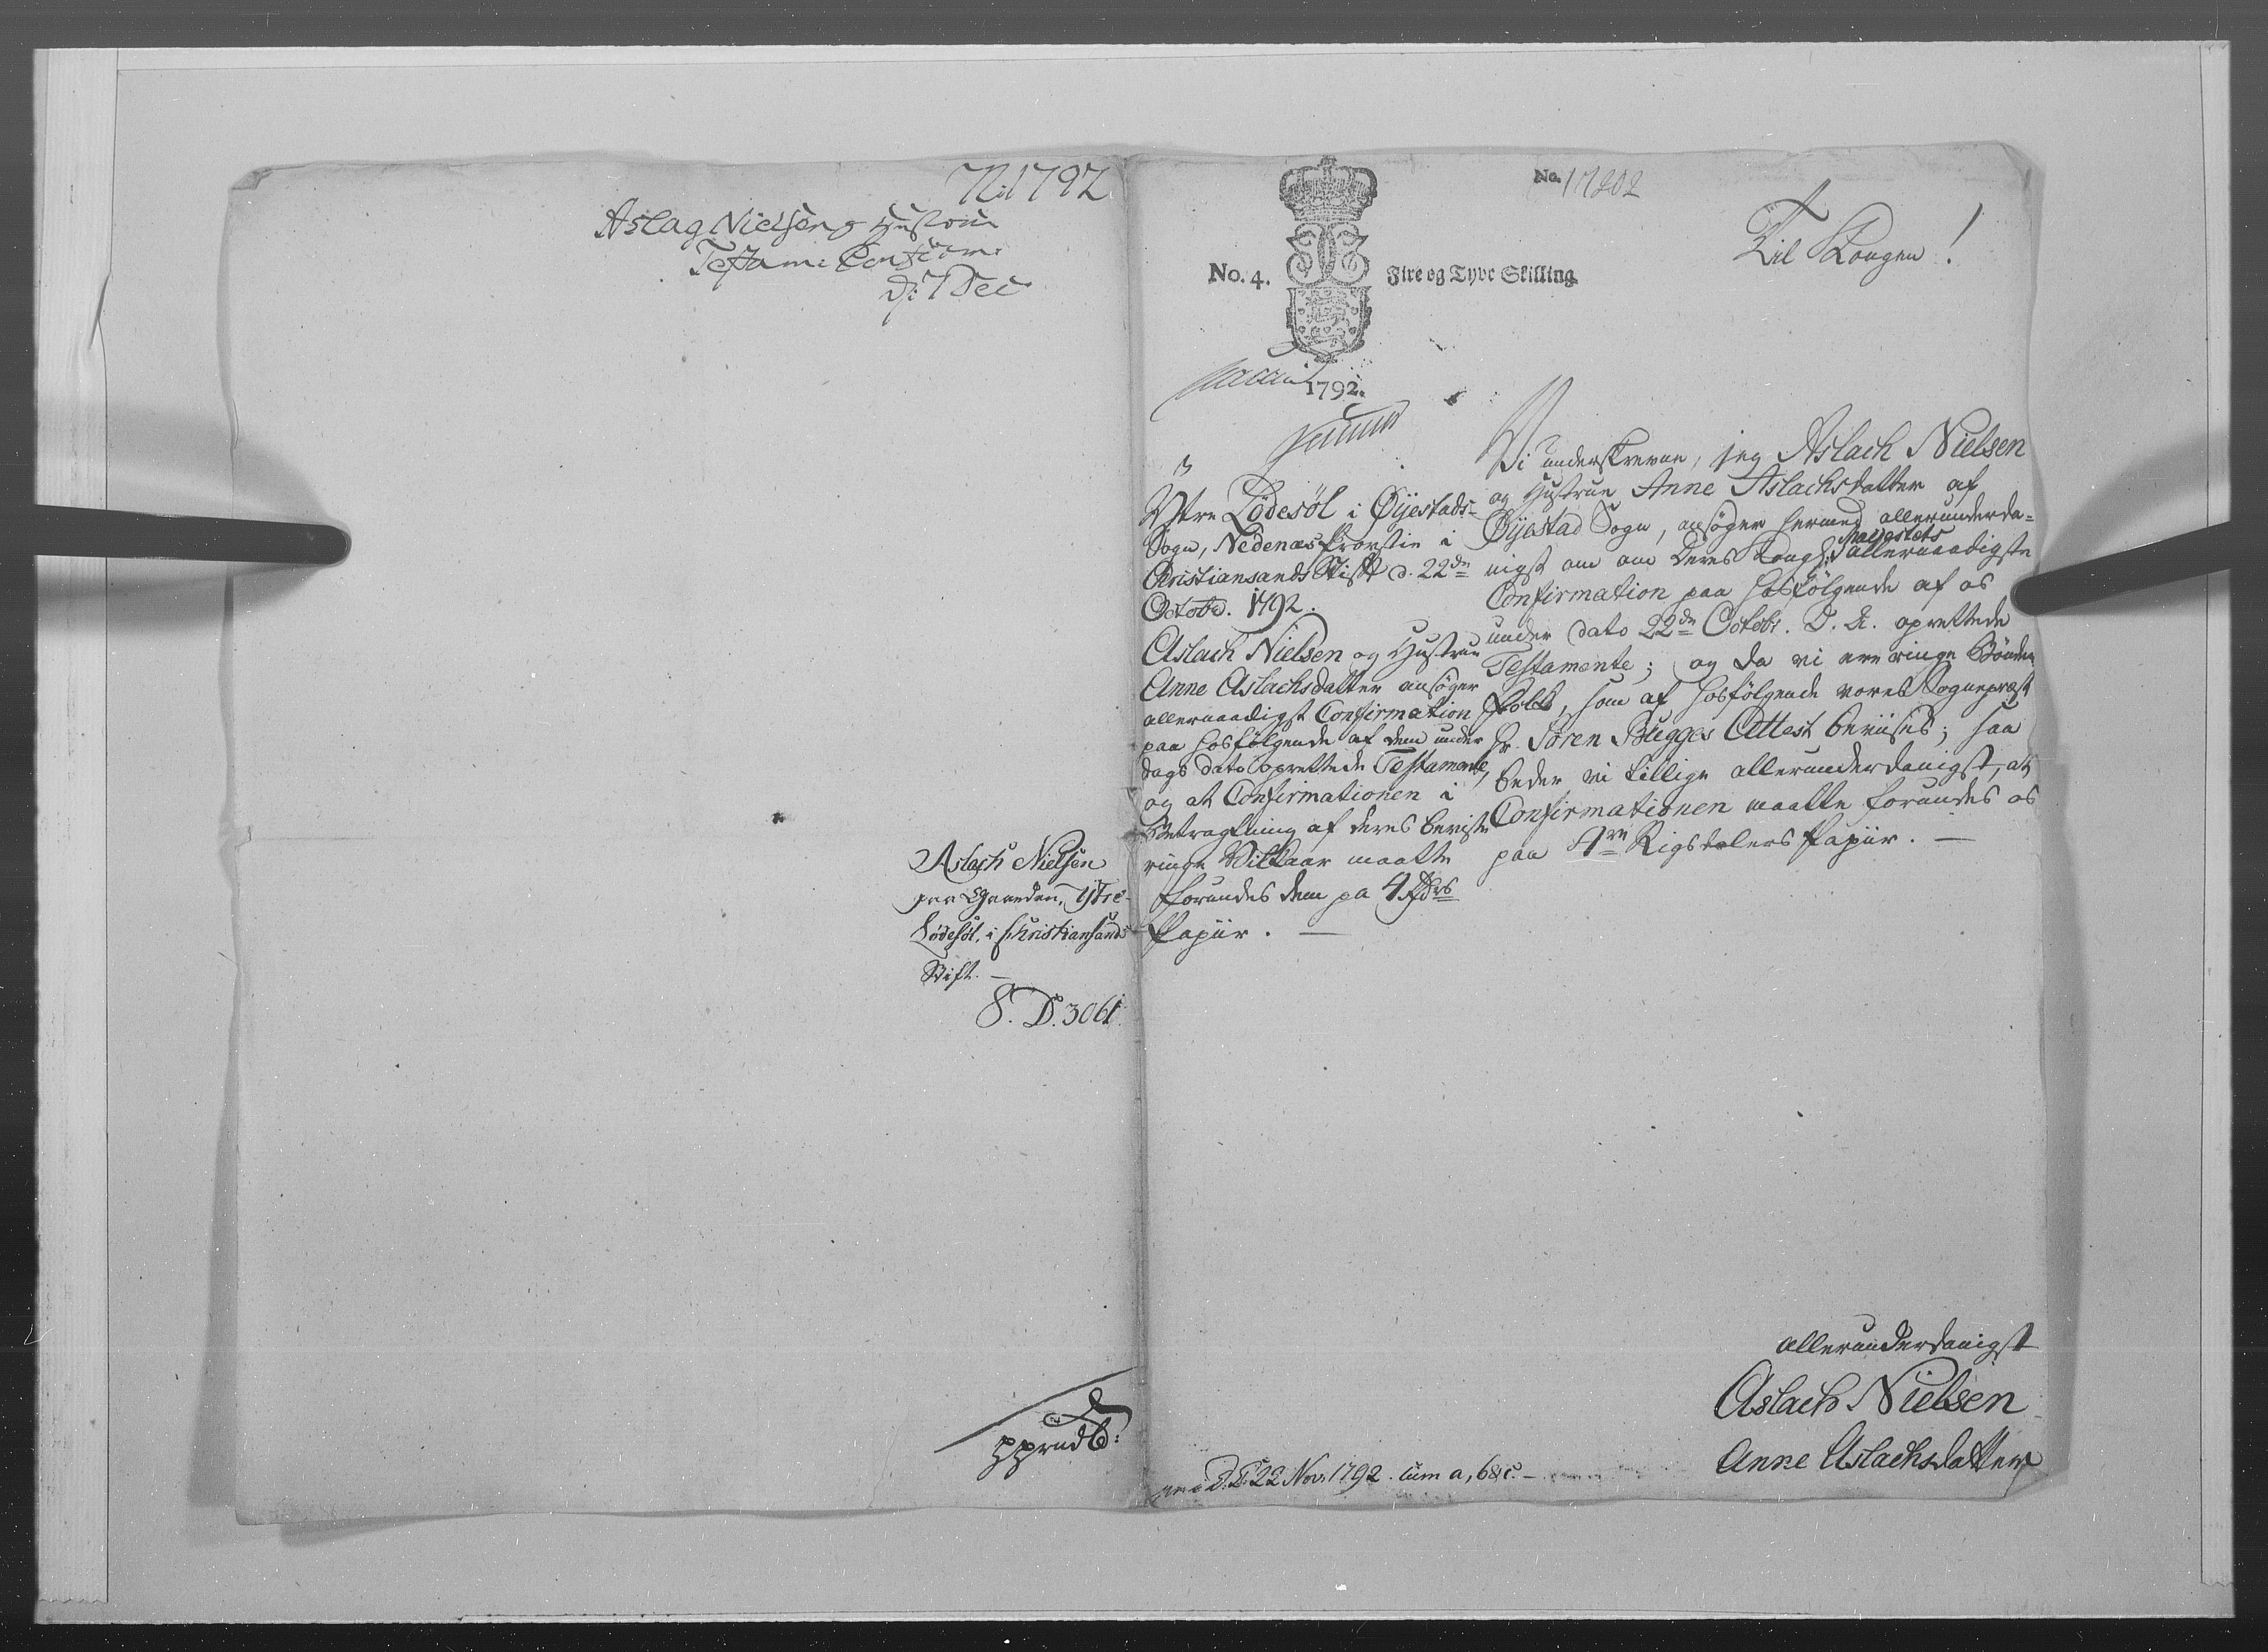 N: 1792
Aslag Nielsen og Hustrue
Testam: Confirm:
D: 7 Dec
Aslach Nielsen
paa Gaarden, Ytre-
Lødesøl, i Christiansands
Stift. —
S. D. 3061
No. 17202
Til Kongen!
No. 4. Fire og Tyve Skilling.
1792.
Ytre Lødesøl i Øijestads-
Sogn, Nedenæs Provstie i
Christiansands Stift d. 22de
Octobr. 1792.
Aslach Nielsen og Hustrue
Anne Aslachsdatter ansøger
allernaadigst Confirmation
paa hosfølgende af dem under
dags dato oprettede Testamente,
og at Confirmationen i
Betragtning af deres beviste
ringe Vilkaar maatte
forundes dem pa 4 Rdrs
Papiir. —
Vi underskrevne, jeg Aslach Nielsen
og Hustrue Anne Aslachsdatter af
Øijestad Sogn, ansøger hermed allerunderda-
nigst om om Deres Kongl: Majestets allernaadigste
Confirmation paa hosfølgende af os
under dato 22de Octobr. D. A. oprettede
Testamente; og da vi ere ringe Bønder
Folk, som af hosfølgende vores Sognepræst
Hr. Søren Bugges Attest beviises; saa
beder vi tillige allerunderdanigst, at
Confirmationen maatte forundes os
paa 4re Rigsdalers Papiir. —
allerunderdanigst
Aslach Nielsen
Anne Aslachsdatter
22 Nov: 1792. cum a, b & c. —